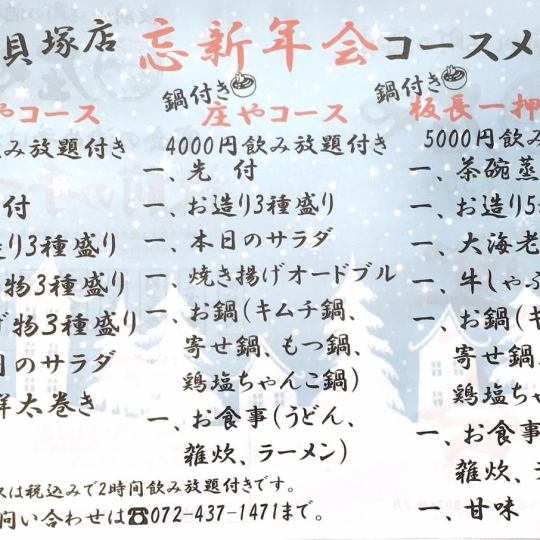 貝塚店 忘新年会コースメ
やコース
み放題付き
付
り3種盛り
物3種盛り
げ物3種盛り
日のサラダ
鮮太巻き
鍋付き
庄やコース
4000円飲み放題付き
一、先 付
一、お造り3種盛り
一、本日のサラダ
一、焼き揚げオードブル
一、お鍋(キムチ鍋、
寄せ鍋、もつ鍋、
鶏塩ちゃんこ鍋)
一、お食事(うどん、
雑炊、ラーメン)
鍋付き
板長一押
5000円飲み
一、茶碗蒸
一、お造り5
一、大海老
一、牛しゃぶ
一、お鍋(キ
寄せ鍋、
鶏塩ちゃん
一、お食事
雑炊、ラ
一、甘味
スは税込みで2時間飲み放題付きです。
問い合わせは☎072-437-1471まで。